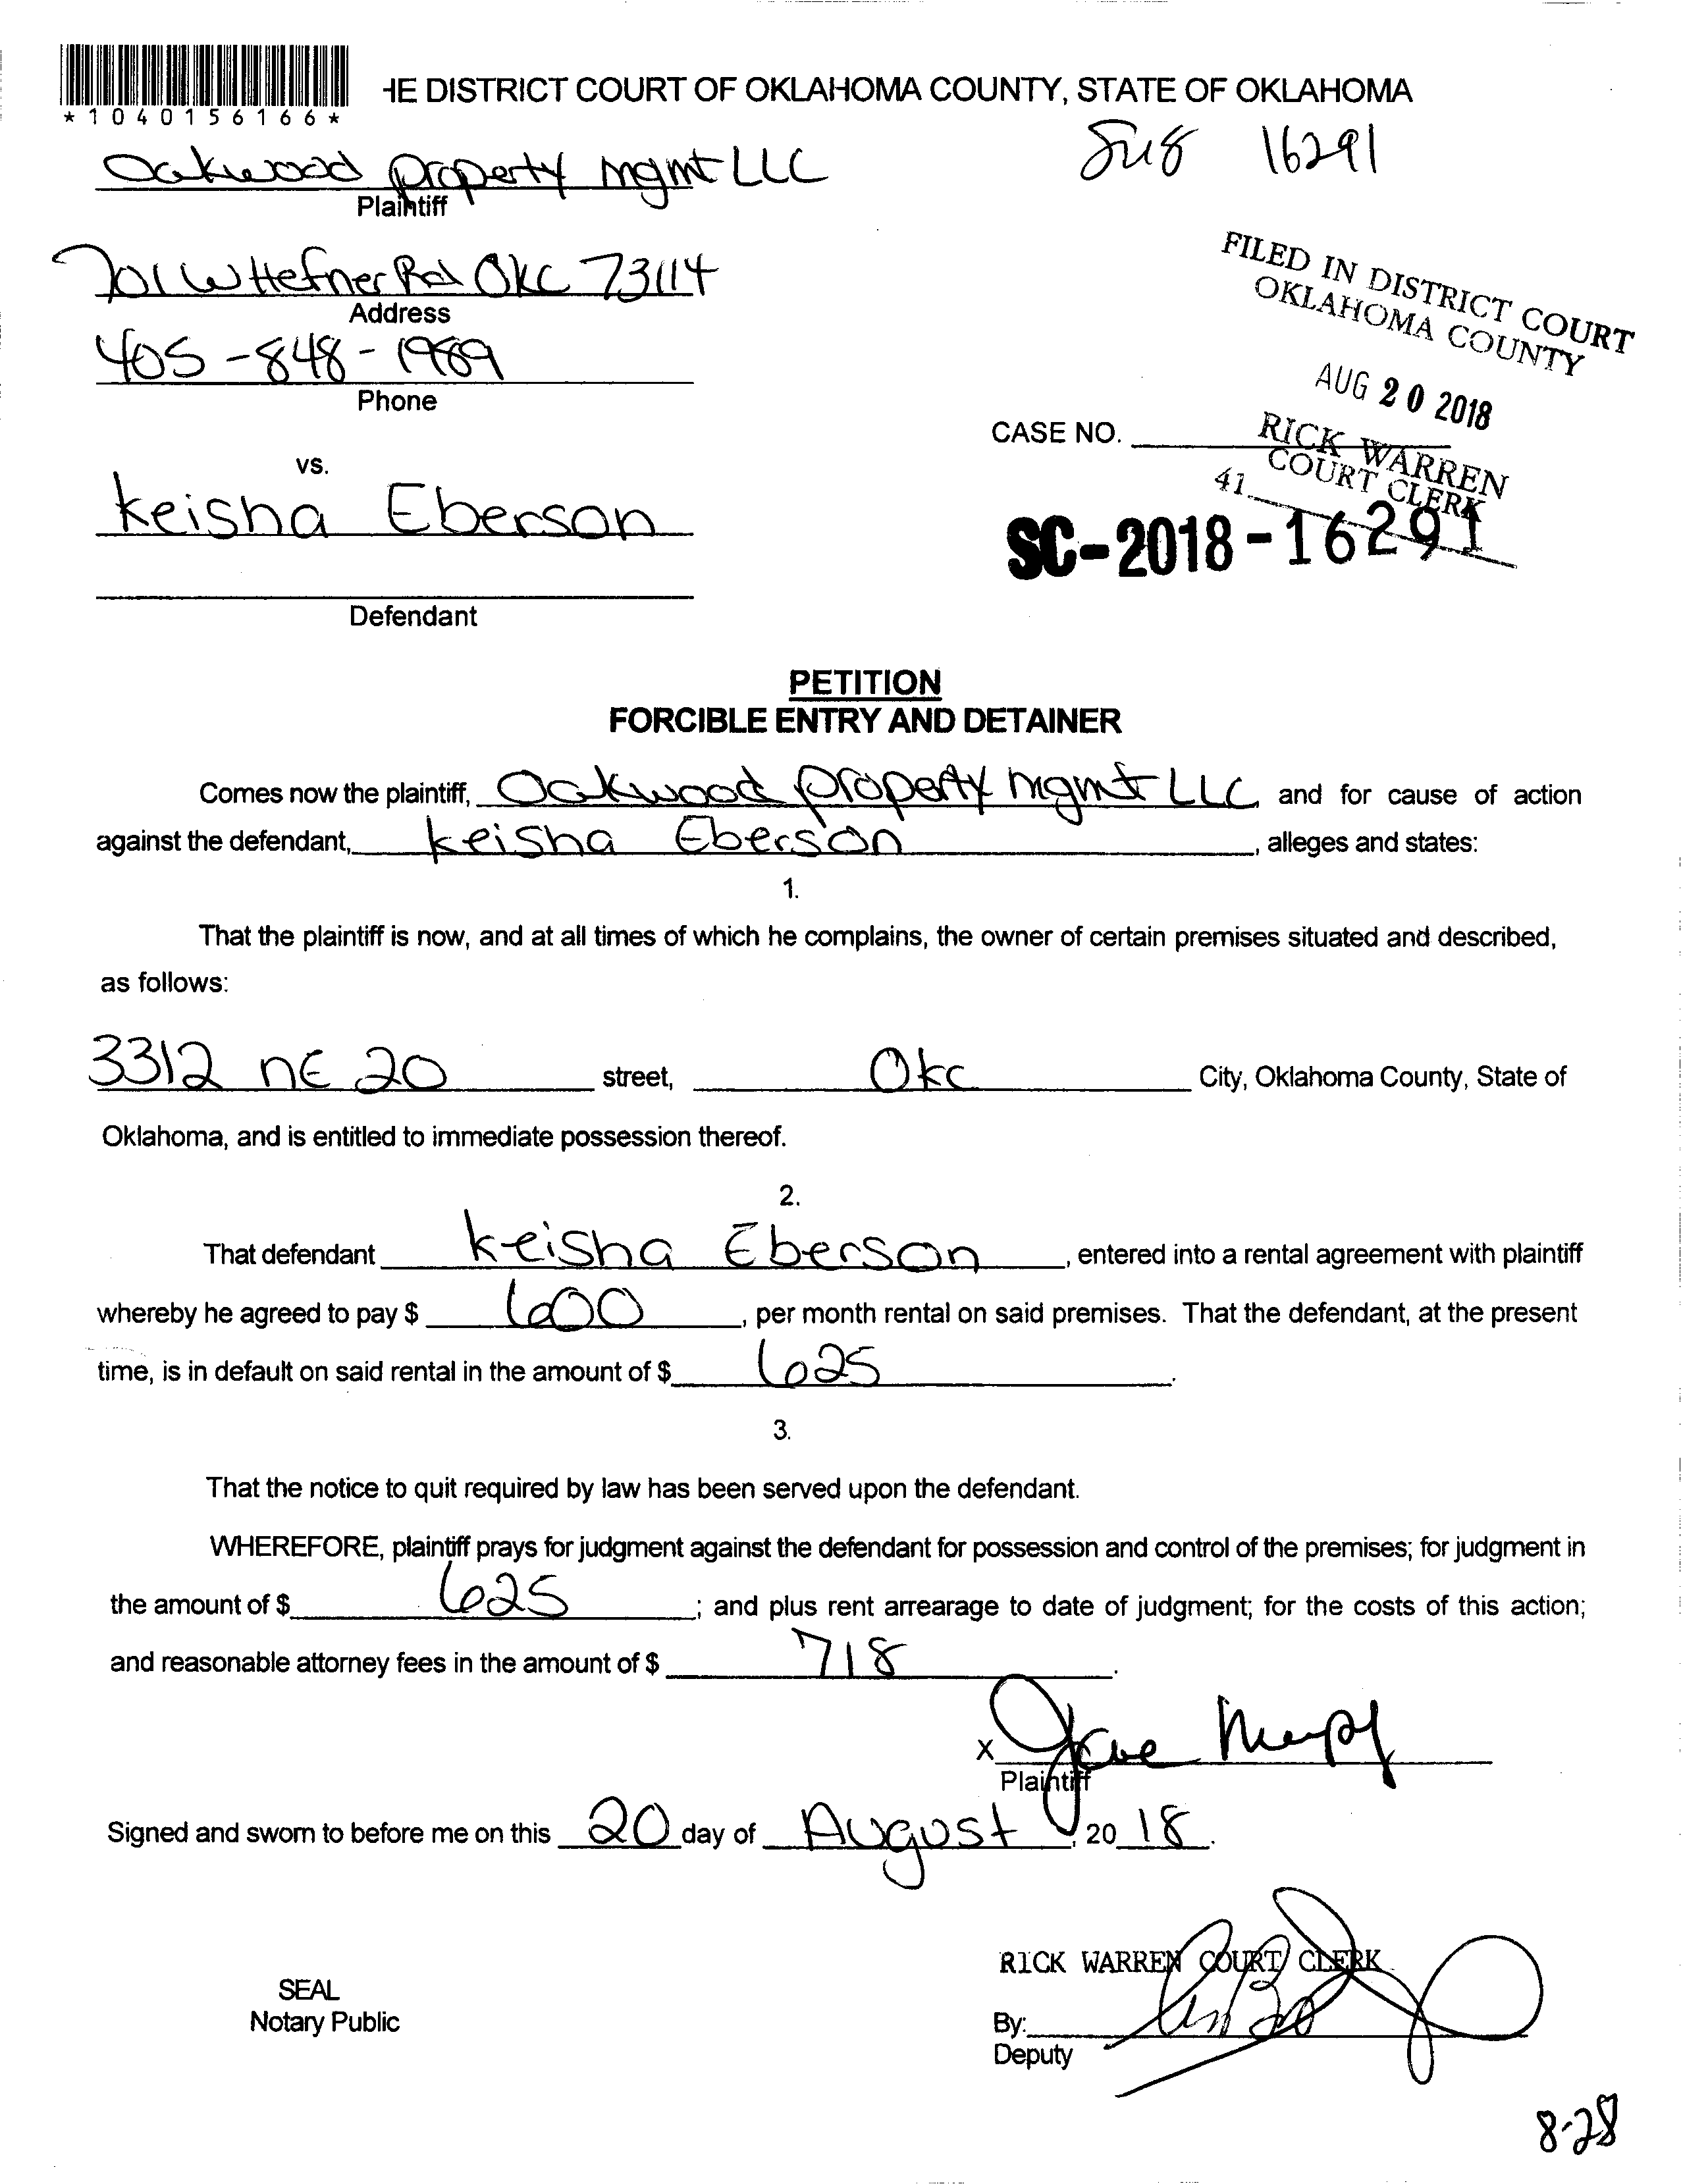 *1040156166*
HE DISTRICT COURT OF OKLAHOMA COUNTY, STATE OF OKLAHOMA
16291
Oakwood property mgmt LLC
Plaintiff
701 W Hefner Rd OKC 73114
Address
405-848-1989
Phone
FILED IN DISTRICT COURT
OKLAHOMA COUNTY
AUG 20 2018
RICK WARREN
COURT CLERK
41
CASE NO.
SC-2018-16291
vs.
Keisha Eberson
Defendant
PETITION
FORCIBLE ENTRY AND DETAINER
Comes now the plaintiff, Oakwood property mgmt LLC and for cause of action
against the defendant, Keisha Eberson, alleges and states:
1.
That the plaintiff is now, and at all times of which he complains, the owner of certain premises situated and described,
as follows:
3312 NE 20 street, OKC City, Oklahoma County, State of
Oklahoma, and is entitled to immediate possession thereof.
2.
That defendant Keisha Eberson, entered into a rental agreement with plaintiff
whereby he agreed to pay $ 600, per month rental on said premises. That the defendant, at the present
time, is in default on said rental in the amount of $ 625.
3.
That the notice to quit required by law has been served upon the defendant.
WHEREFORE, plaintiff prays for judgment against the defendant for possession and control of the premises; for judgment in
the amount of $ 625; and plus rent arrearage to date of judgment; for the costs of this action;
and reasonable attorney fees in the amount of $ 718.
X
Plaintiff
Signed and sworn to before me on this 20 day of August, 20 18.
RICK WARREN COURT CLERK
SEAL
Notary Public
By:
Deputy
8-28